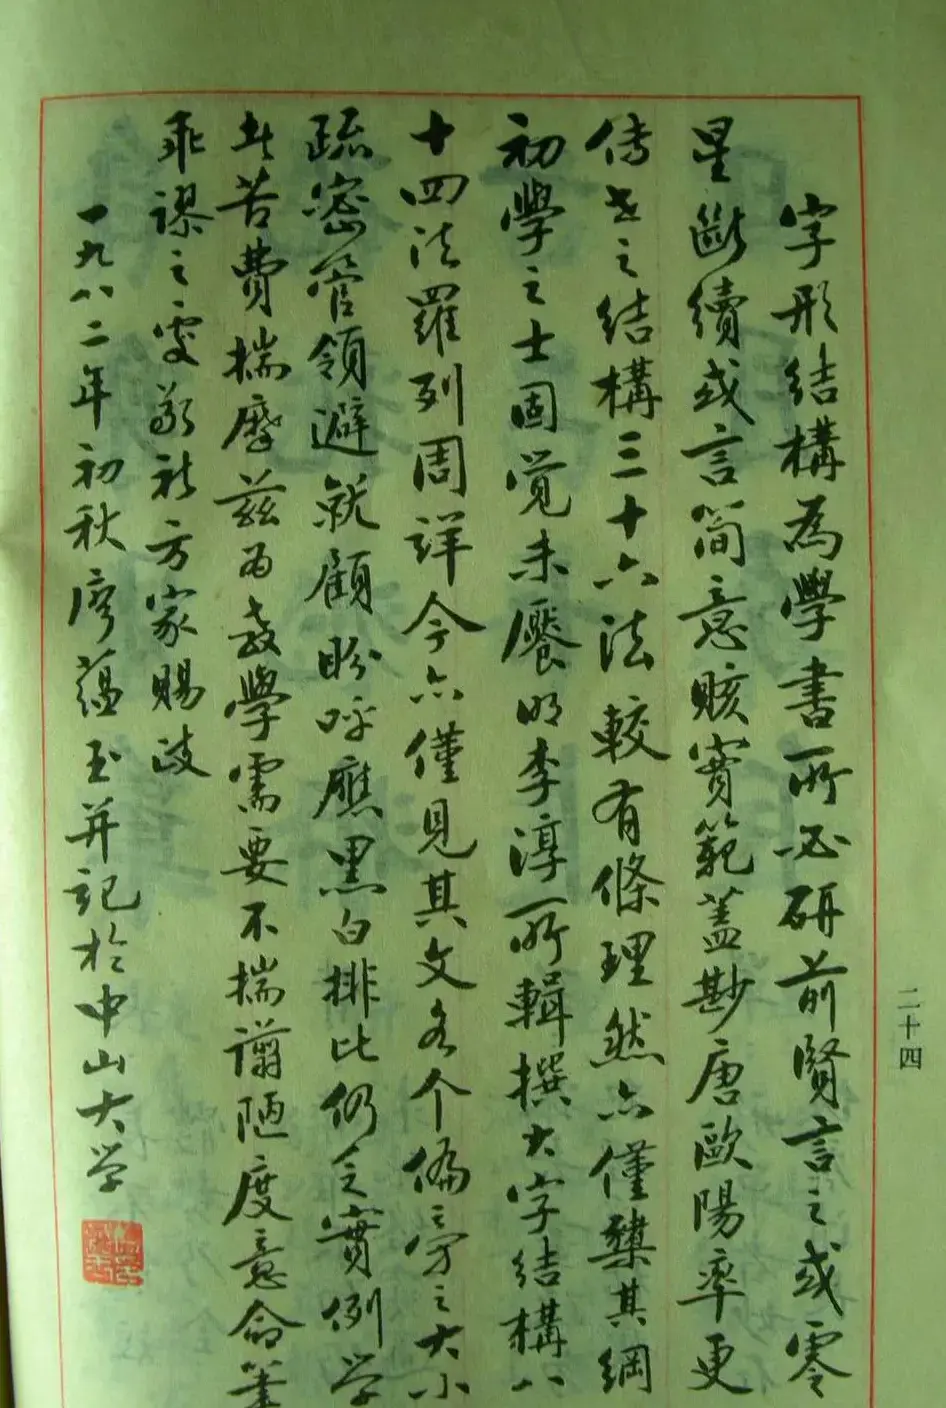 字形結構為學書所必研前賢言之或零
星斷續或言簡意賅實範蓋尠唐歐陽率更
傳世之結構三十六法較有條理然亦僅舉其綱
初學之士固覺未饜明李淳所輯撰大字結構八
十四法羅列周詳今亦僅見其文各个偏旁之大小
疏密管領避就顧盼呼應黑白排比仍乏實例学
者苦費揣摩茲為教學需要不揣譾陋度意命筆
乖謬之處敬祈方家賜政
一九八二年初秋廖蘊玉并記於中山大学
二十四